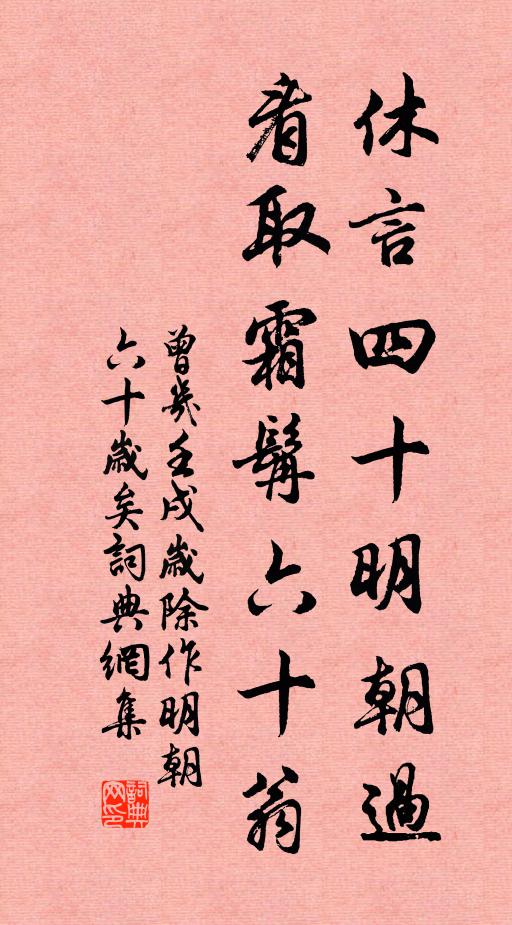 休言四十明朝過
看取霜髯六十翁
曾幾壬戌歲除作明朝
六十歲矣詞典網集
詞典網印